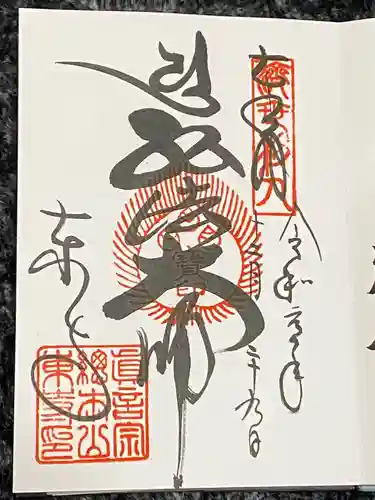 奉拝
令和元年
十二月二十九日
弘法大師
東寺
真言宗
總本山
東寺印